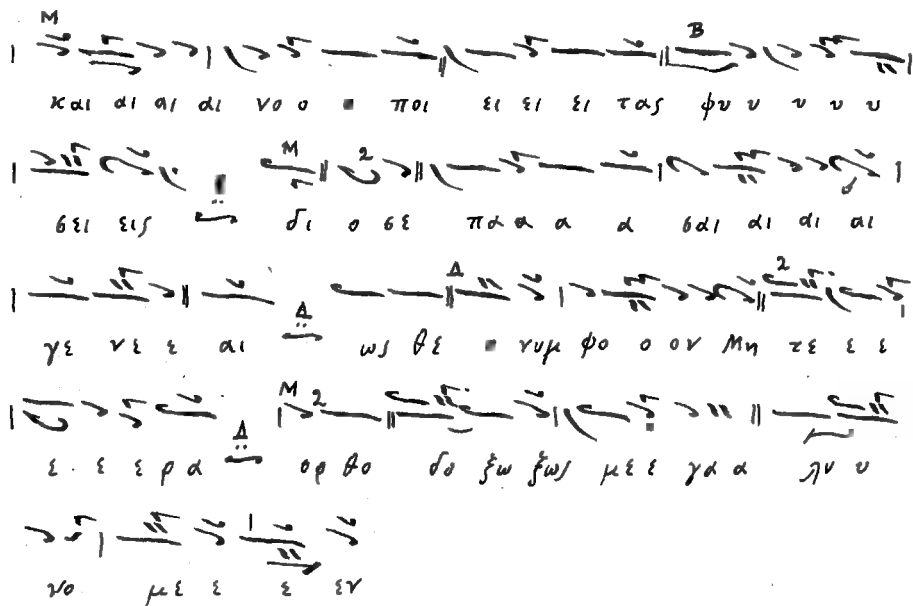 και αι αι αι νο ο ο ποι ει ει ει τας φυ υ υ υ υ
σει εις δι ο σε πα α α α σαι αι αι αι
γε νε ε αι ως θε ο νυμ φο ο ον Μη τε ε ε
ε ε ε ρα ορ θο δο ξω ξως με ε γα α λυ υ
νο με ε ε εν